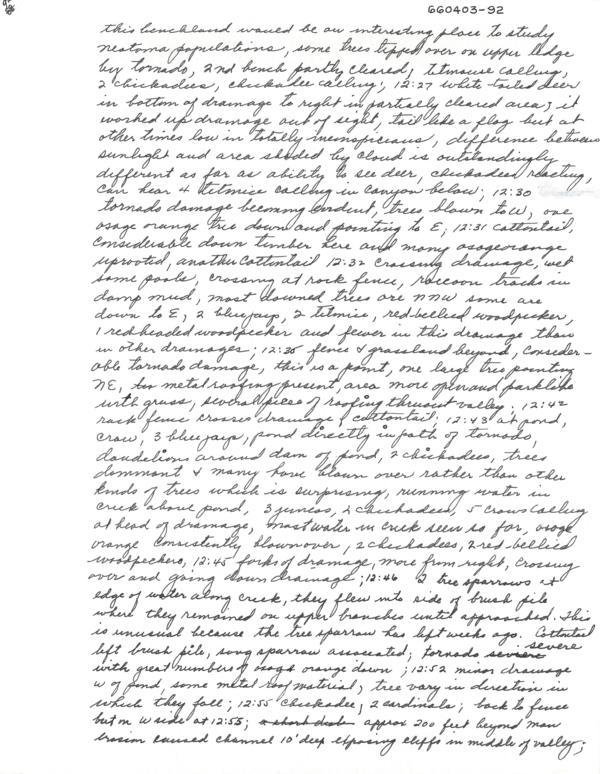 660403-92
this benchland would be an interesting place to study
neotoma populations, some trees tipped over on upper ledge
by tornado, 2nd bench partly cleared, titmouse calling,
2 chickadees, chickadee calling; 12:27 white-tailed deer
in bottom of drainage to right in partially cleared area; it
worked up drainage out of sight, tail like a flag but at
other times low in totally inconspicious, difference between
sunlight and area shaded by cloud is outstandingly
different as far as ability to see deer, chickadees reacting,
can hear 4 titmice calling in canyon below; 12:30
tornado damage becoming evident, trees blown to W, one
osage orange tree down and pointing to E; 12:31 cottontail,
considerable down timber here and many osage orange
uprooted, another cottontail 12:32 crossing drainage, wet
some pools, crossing at rock fence, raccoon tracks in
damp mud, most downed trees are NNW some are
down to E, 2 bluejays, 2 titmice, red-bellied woodpecker,
1 redheaded woodpecker and fewer in this drainage than
in other drainages; 12:35 fence & grassland beyond, consider-
able tornado damage, this is a point, one large tree pointing
NE, metal roofing present, area more open and parklike
with grass, several pieces of roofing thruout valley; 12:42
rock fence crosses drainage, cottontail; 12:43 at pond,
crow, 3 bluejays, pond directly in path of tornado,
dandelions around dam of pond, 2 chickadees, trees
dominant & many have blown over rather than other
kinds of trees which is surprising, running water in
creek above pond, 3 juncos, 2 chickadees, 5 crows calling
at head of drainage, most water in creek seen so far, osage
orange consistently blown over, 2 chickadees, 2 red-bellied
woodpeckers; 12:45 forks of drainage, more from right, crossing
over and going down drainage; 12:46 2 tree sparrows at
edge of water along creek, they flew into side of brush pile
where they remained on upper branches until approached. This
is unusual because the tree sparrow has left weeks ago. Cottontail
left brush pile, song sparrow associated; tornado severe severe
with great numbers of osage orange down; 12:52 minor drainage
W of pond, some metal roof material, tree vary in direction in
which they fall; 12:55 chickadee, 2 cardinals; back to fence
but on W side at 12:55; a short dist approx 200 feet beyond man
erosion caused channel 10' deep exposing cliffs in middle of valley;